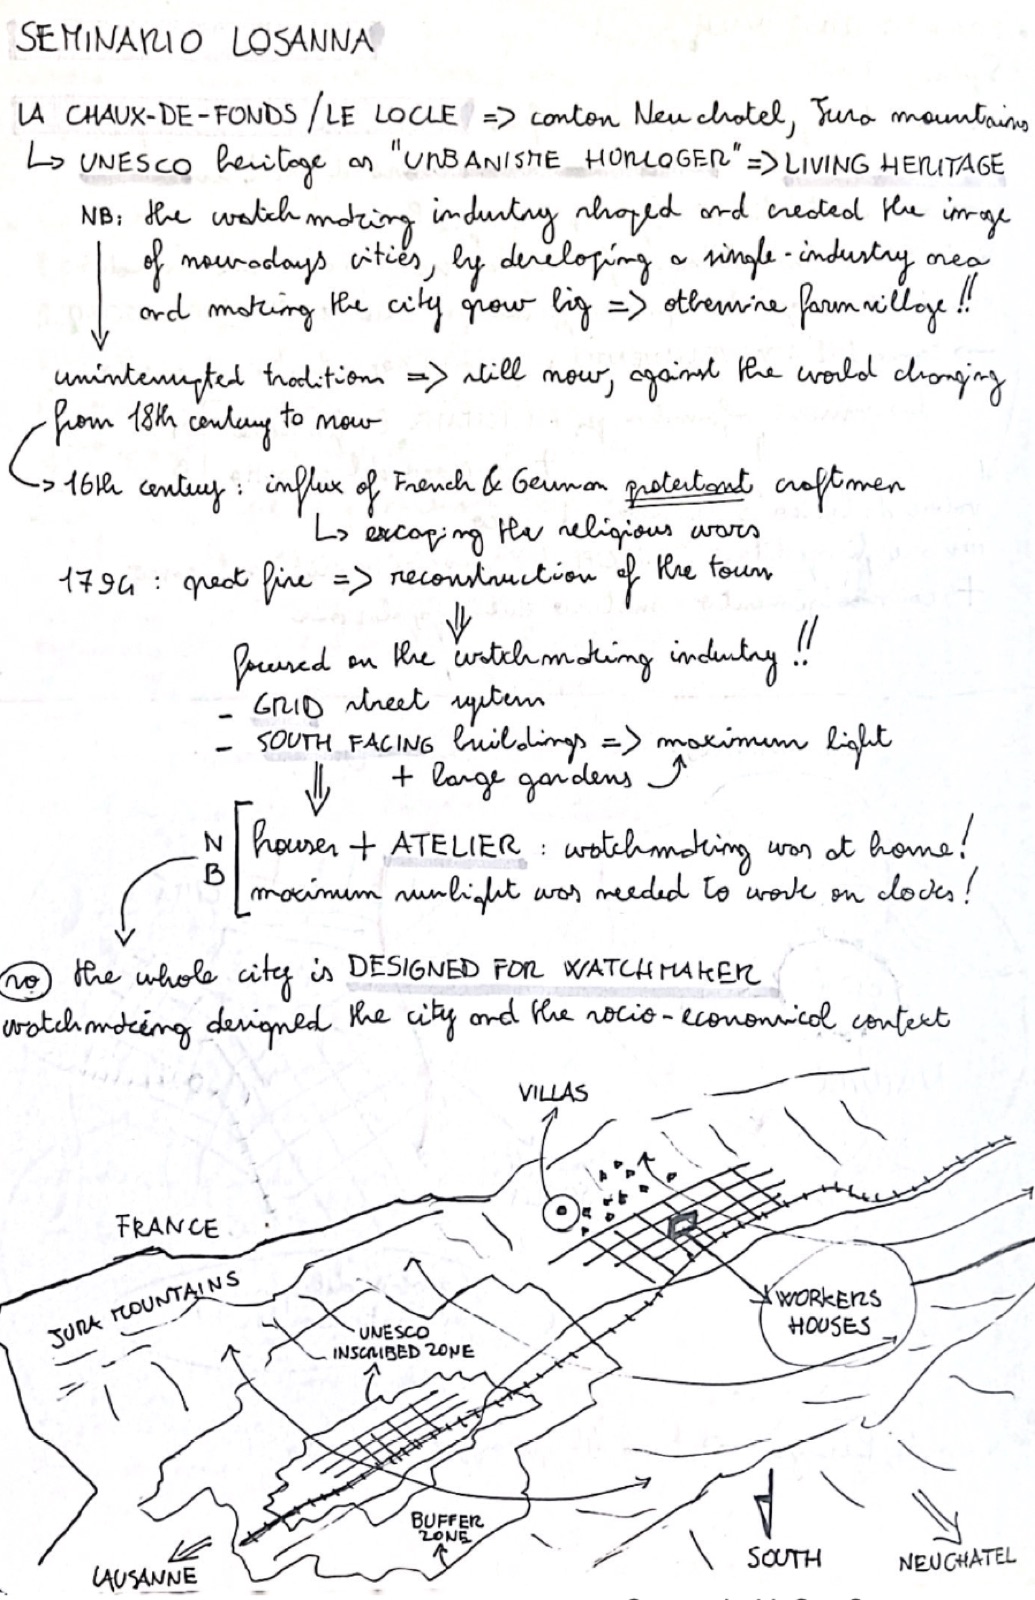 SEMINARIO LOSANNA
LA CHAUX-DE-FONDS / LE LOCLE => canton Neuchatel, Jura mountains
↳ UNESCO heritage as "URBANISME HORLOGER" => LIVING HERITAGE
NB: the watchmaking industry shaped and created the image
of nowadays cities, by developing a single-industry area
and making the city grow big => otherwise farm village!!
uninterrupted tradition => still now, against the world changing
from 18th century to now
→ 16th century: influx of French & German protestant craftmen
↳ escaping the religious wars
1794: great fire => reconstruction of the town
⇓
focused on the watchmaking industry!!
- GRID street system
- SOUTH FACING buildings => maximum light
+ large gardens
NB
houses + ATELIER: watchmaking was at home!
maximum sunlight was needed to work on clocks!
so the whole city is DESIGNED FOR WATCHMAKER
watchmaking designed the city and the socio-economical context
VILLAS
FRANCE
JURA MOUNTAINS
WORKERS
HOUSES
UNESCO
INSCRIBED ZONE
BUFFER
ZONE
LAUSANNE
SOUTH
NEUCHATEL